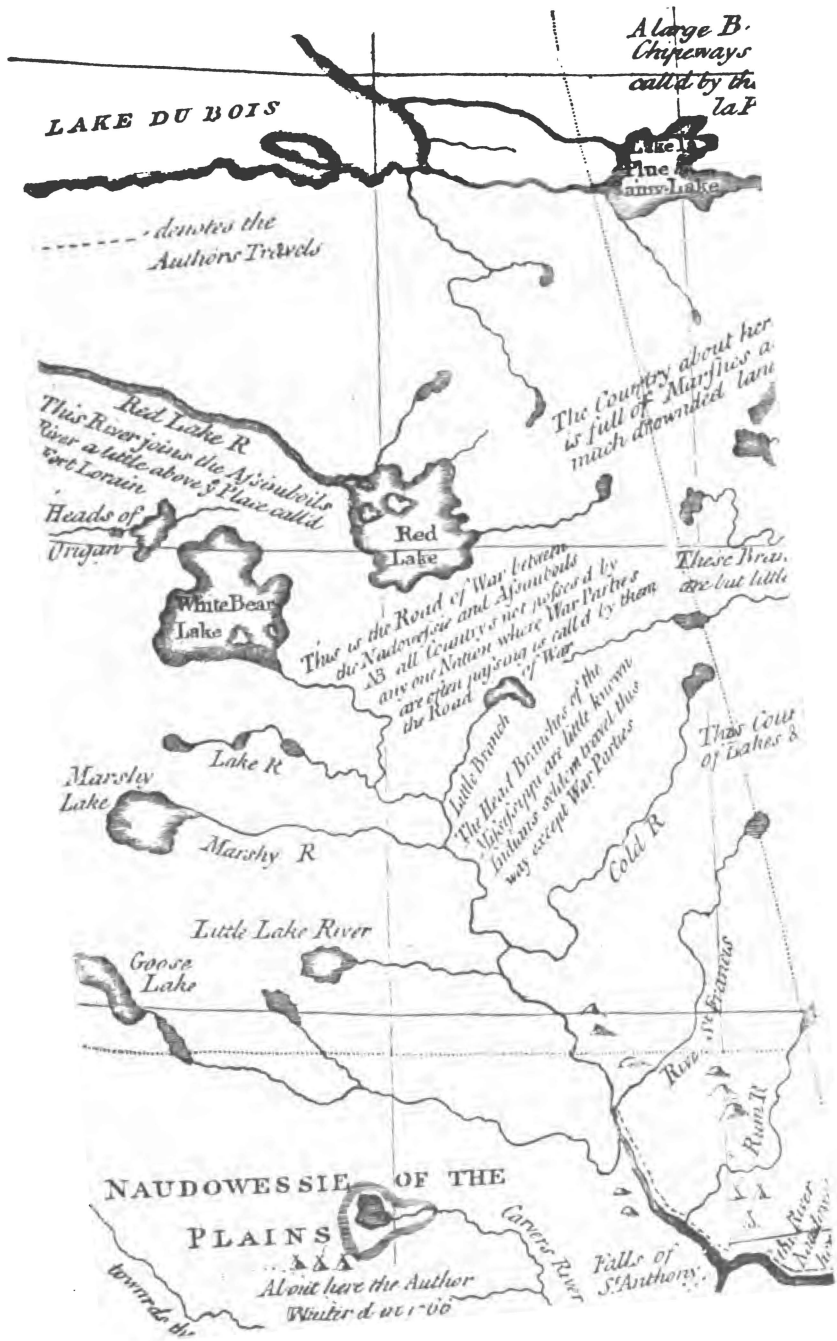 A large B.
Chipeways
call'd by the
la P
LAKE DU BOIS
Lake la
Plue
Lake
- denotes the
Authors Travels
The Country about her
is full of Marshes a
much drownded land
Red Lake R
This River joins the Assinuboils
River a little above ye Place call'd
Fort Lorain
Heads of
Origan
Red
Lake
White Bear
Lake
This is the Road of War between
the Nadowessis and Assinuboils
AB all Country's not possess'd by
any one Nation where War Parties
are often passing is call'd by them
the Road of War
These Bran
are but little
Little Branch
The Head Branches of the
Missisippi are little known
Indians seldom travel this
way except War Parties
This Coun
of Lakes &
Lake R
Marshy
Lake
Marshy R
Cold R
Little Lake River
Goose
Lake
River St Francis
Rum R
NAUDOWESSIE OF THE
PLAINS
Carvers River
Falls of
St Anthony
River
About here the Author
Winter'd in 1766
towards th